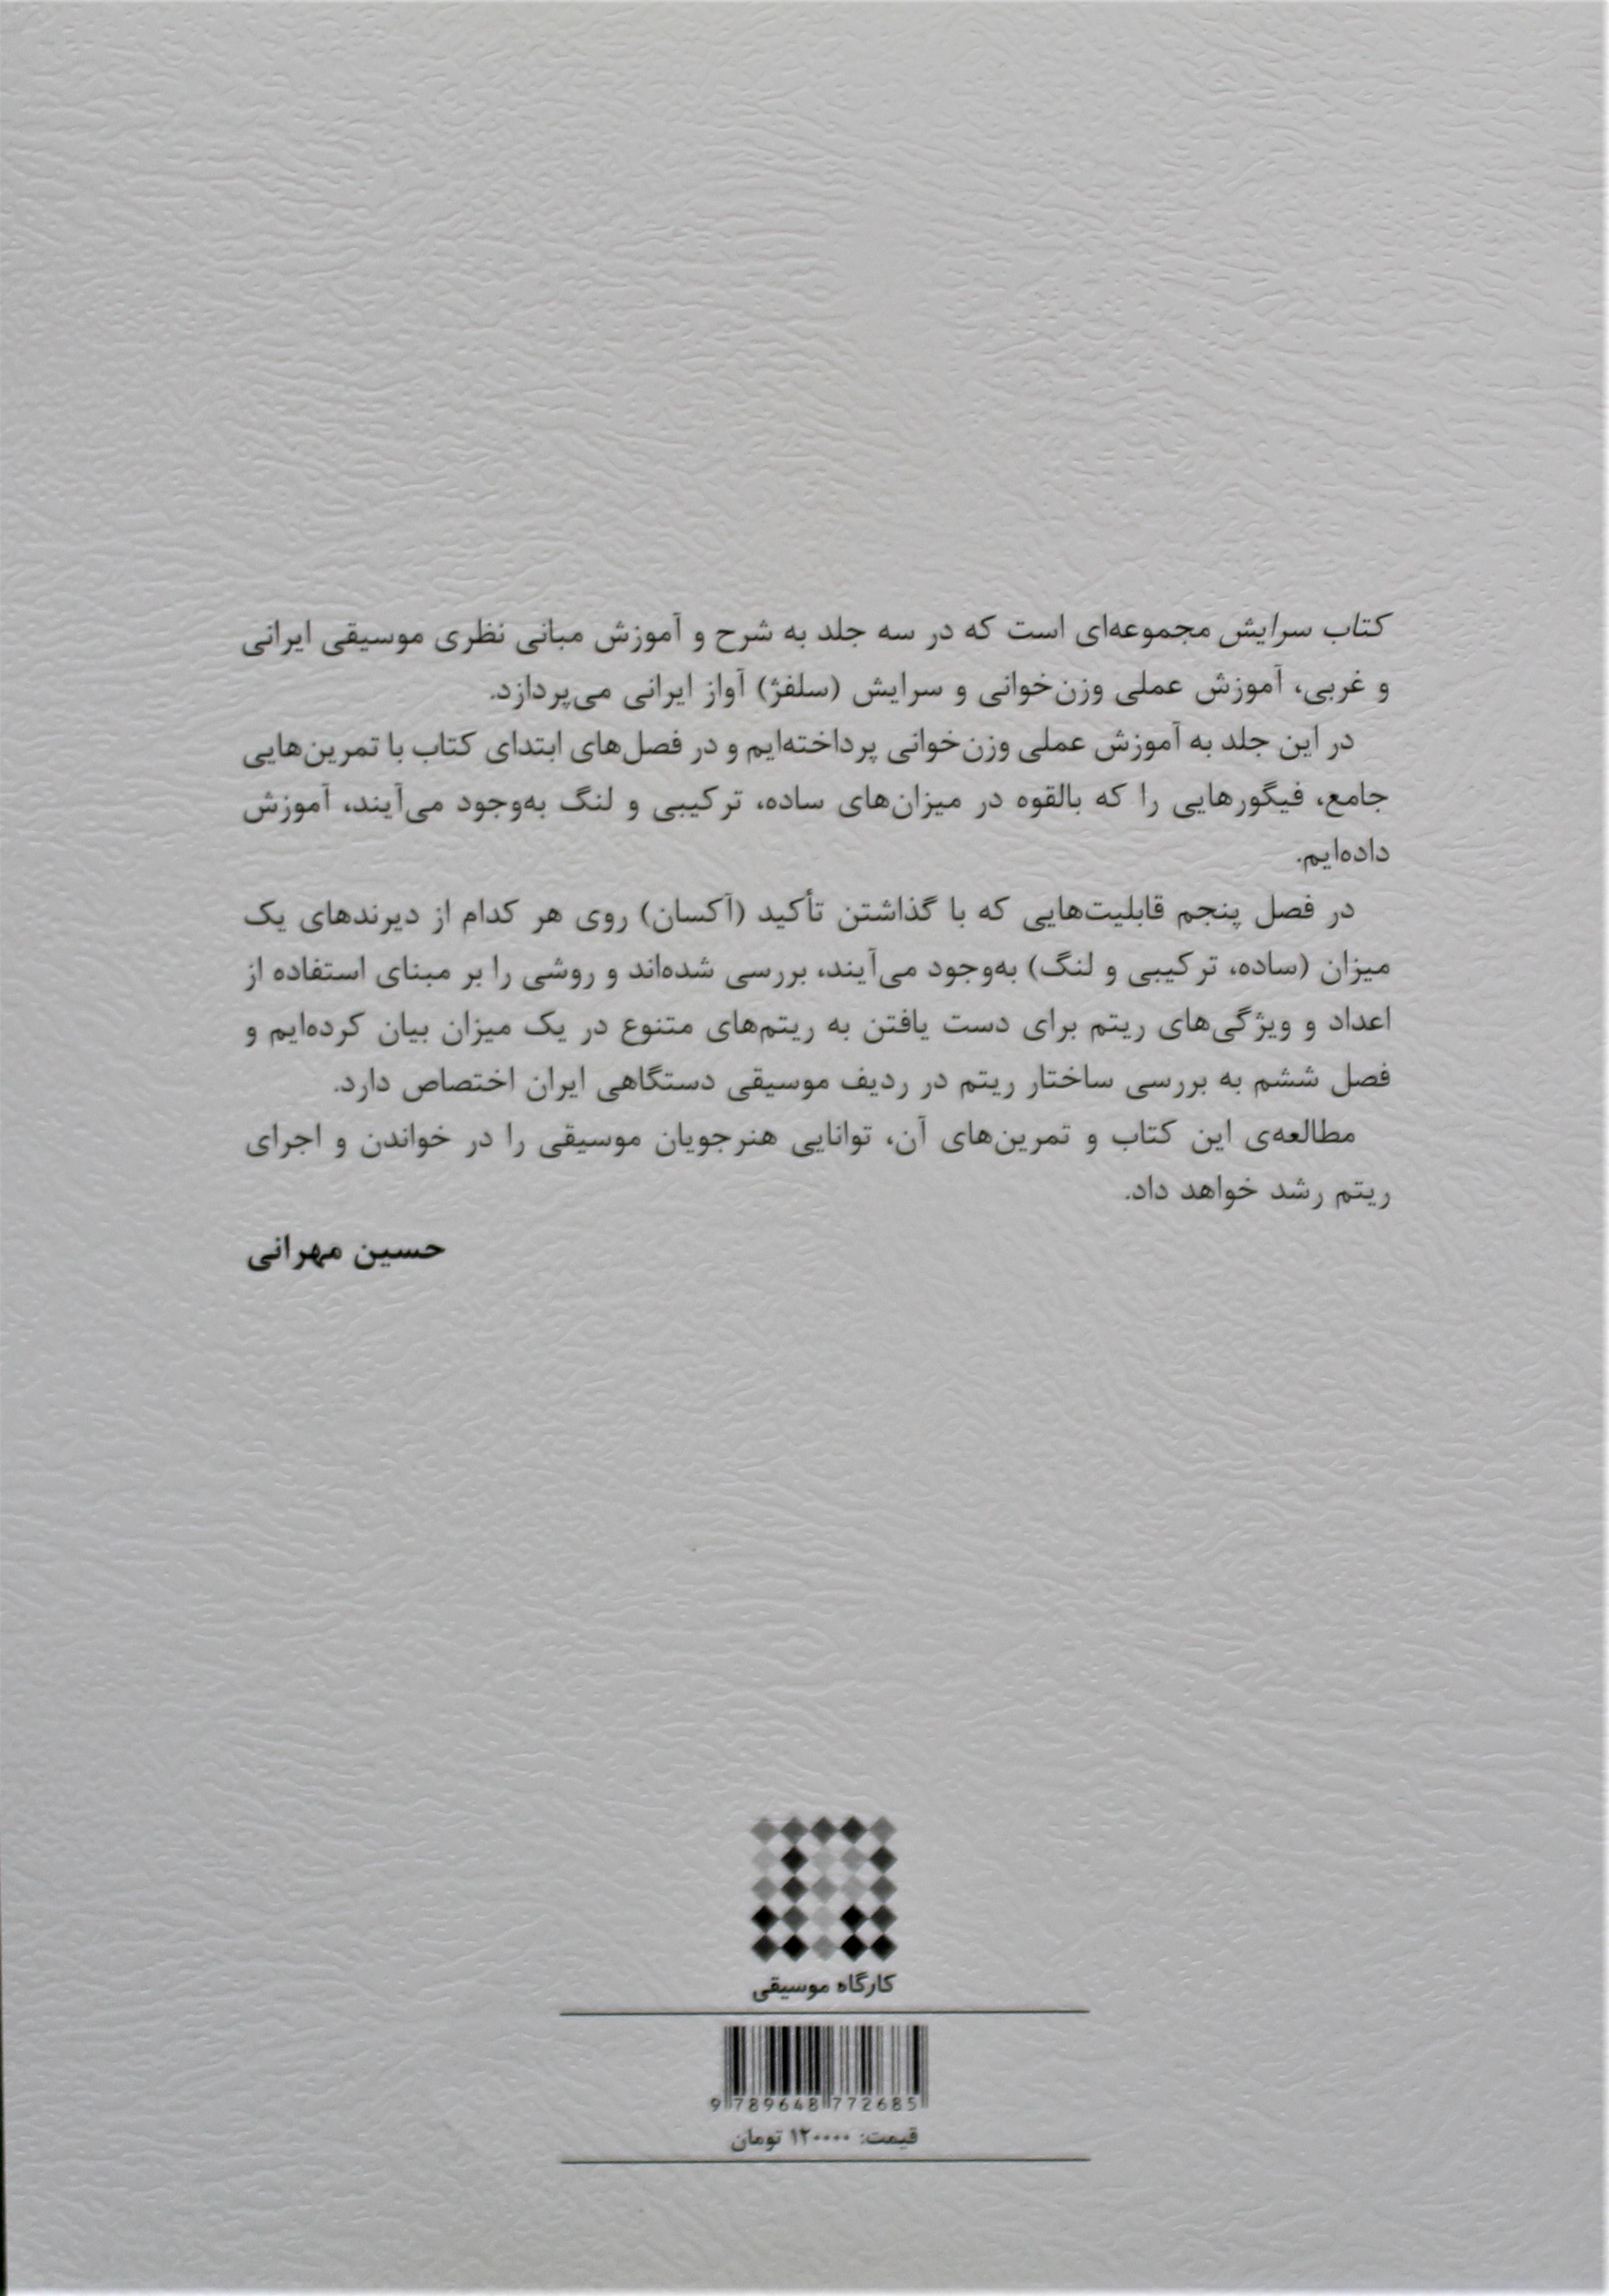 کتاب سرایش مجموعه‌ای است که در سه جلد به شرح و آموزش مبانی نظری موسیقی ایرانی
و غربی، آموزش عملی وزن‌خوانی و سرایش (سلفژ) آواز ایرانی می‌پردازد.
در این جلد به آموزش عملی وزن‌خوانی پرداخته‌ایم و در فصل‌های ابتدای کتاب با تمرین‌هایی
جامع، فیگورهایی را که بالقوه در میزان‌های ساده، ترکیبی و لنگ به‌وجود می‌آیند، آموزش
داده‌ایم.
در فصل پنجم قابلیت‌هایی که با گذاشتن تأکید (آکسان) روی هر کدام از دیرندهای یک
میزان (ساده، ترکیبی و لنگ) به‌وجود می‌آیند، بررسی شده‌اند و روشی را بر مبنای استفاده از
اعداد و ویژگی‌های ریتم برای دست یافتن به ریتم‌های متنوع در یک میزان بیان کرده‌ایم و
فصل ششم به بررسی ساختار ریتم در ردیف موسیقی دستگاهی ایران اختصاص دارد.
مطالعه‌ی این کتاب و تمرین‌های آن، توانایی هنرجویان موسیقی را در خواندن و اجرای
ریتم رشد خواهد داد.
حسین مهرانی
کارگاه موسیقی
9 789648 772685
قیمت: ۱۲۰۰۰۰ تومان